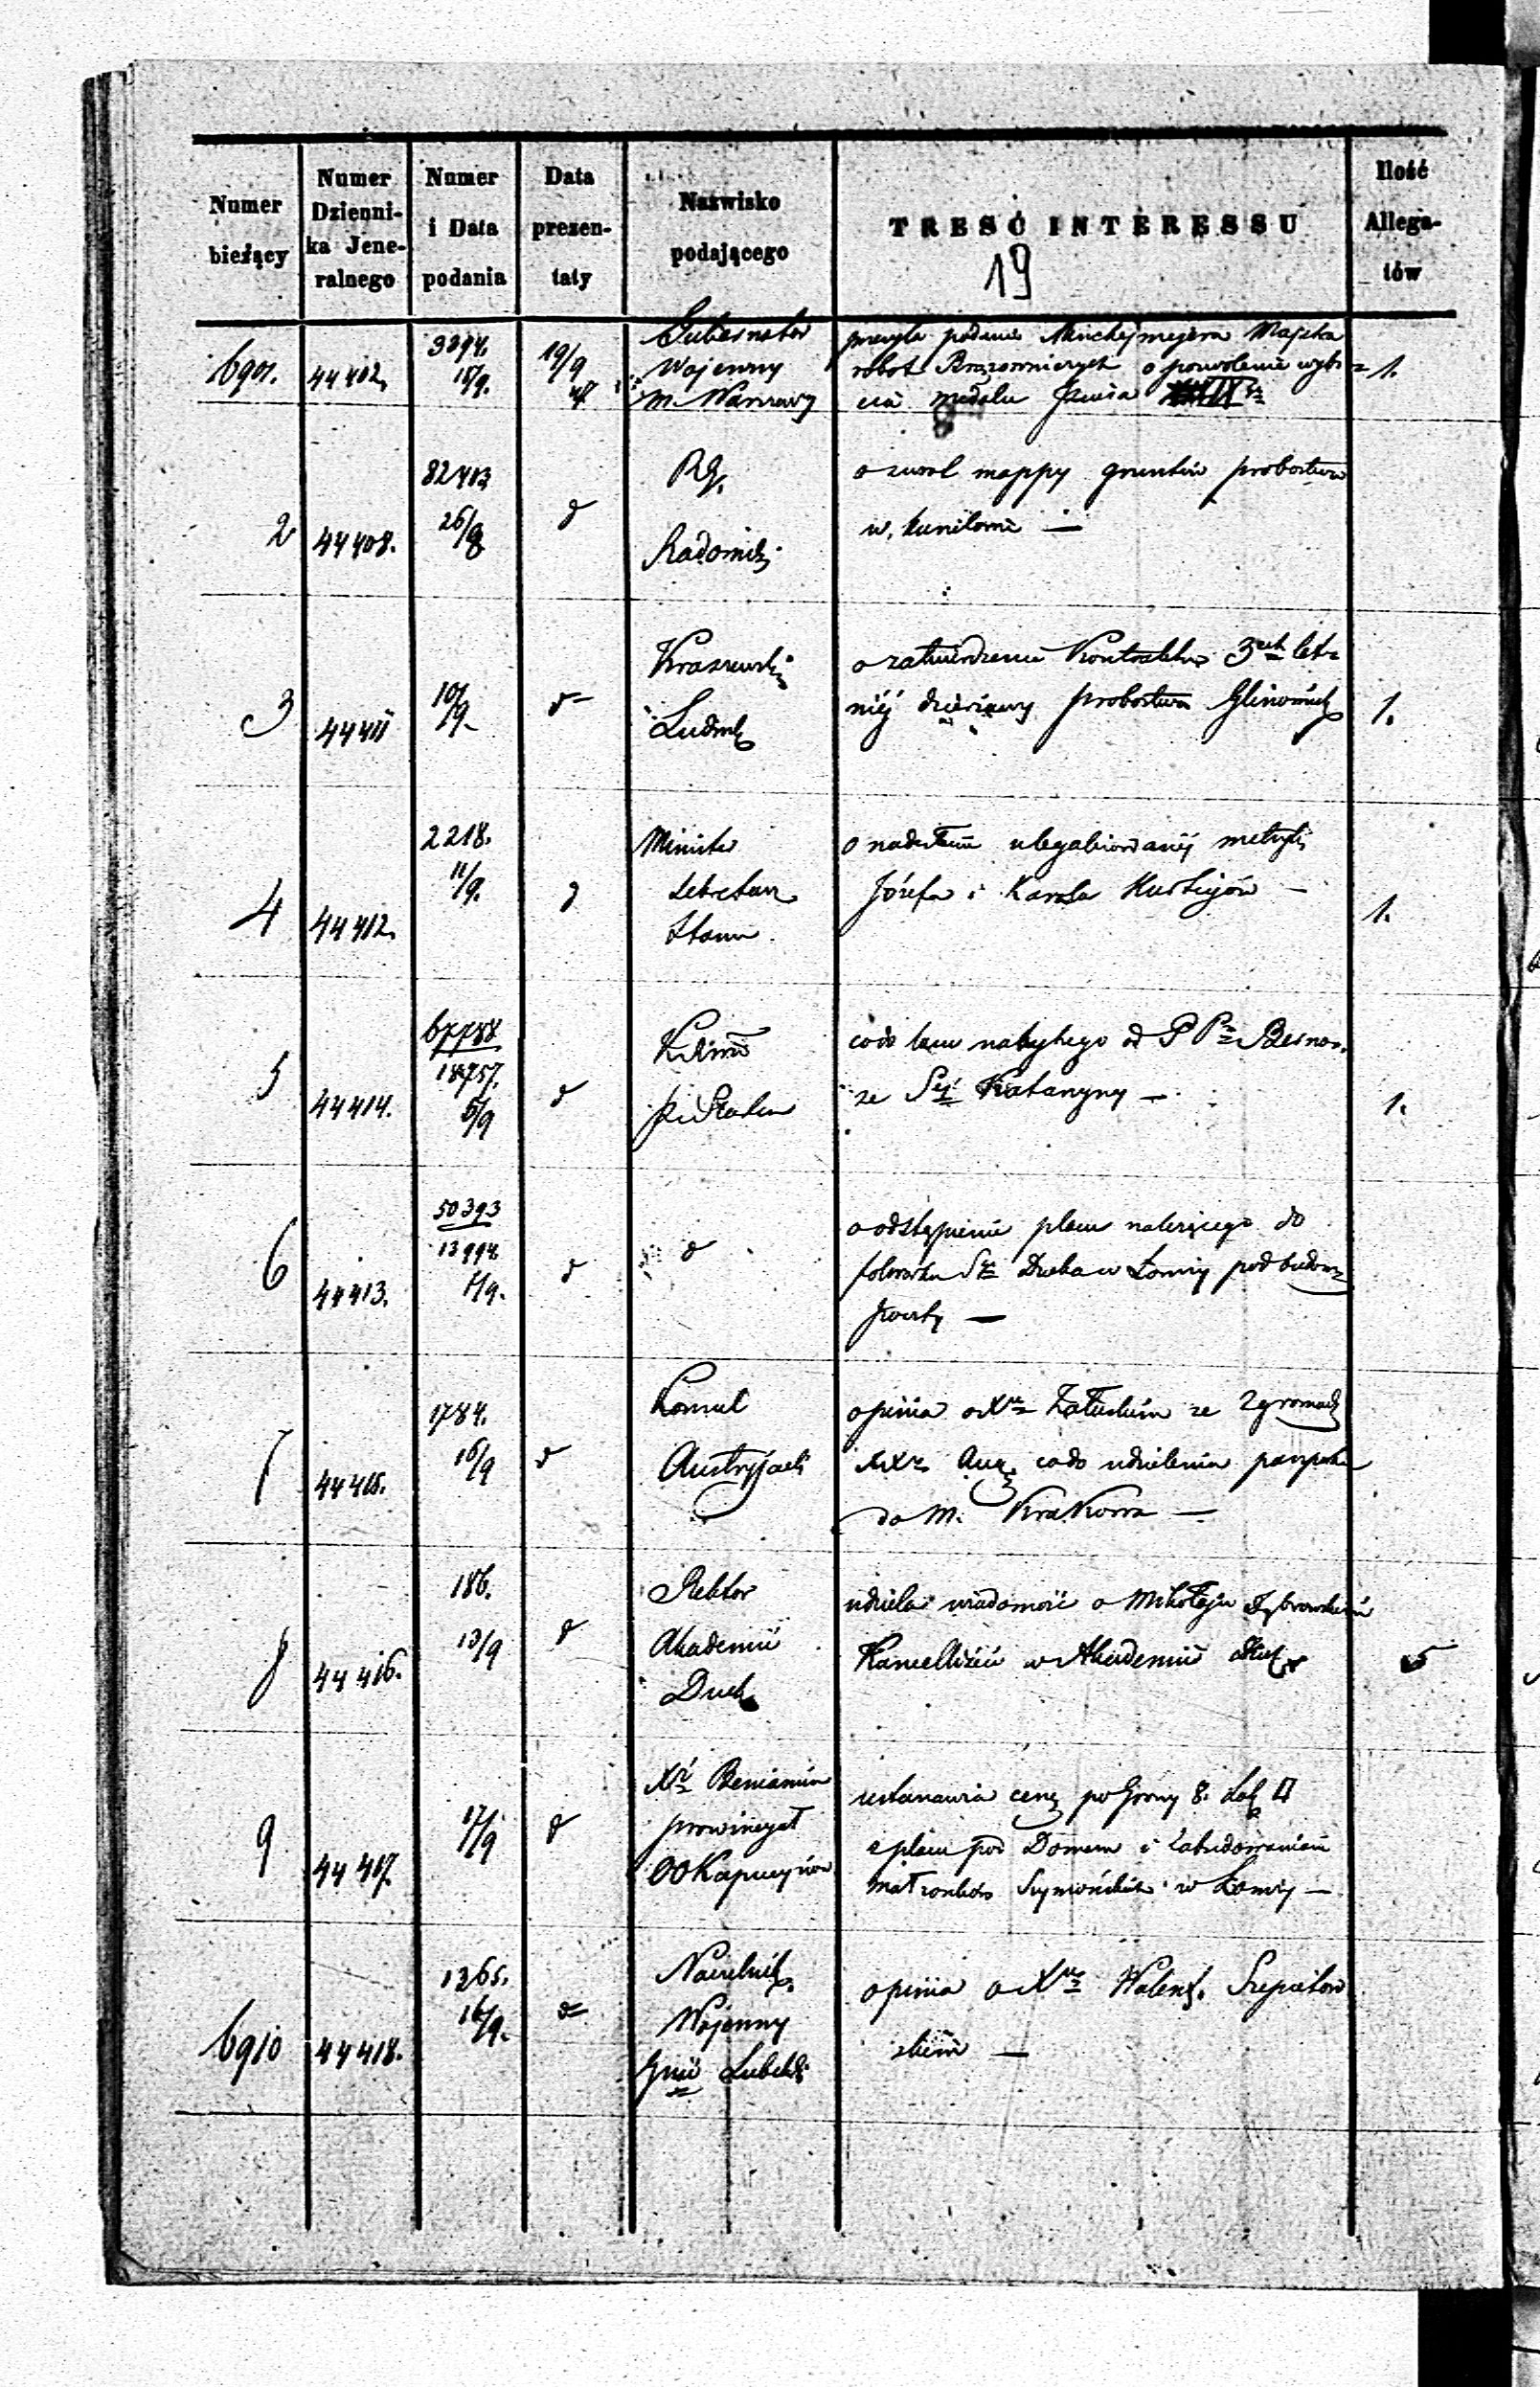 Numer bieżący
Numer Dzienni-ka Jene-ralnego
Numer i Data podania
Data prezen-taty
Nazwisko podającego
TREŚĆ INTERESSU
Ilość Allega-tów
19
6901. 44402, 3394. 15/9. 19/9
Gubernator
Wojenny
m. Warszawy
przesyła podanie Majstra
robot o pozwolenie wybi=
cia medalu Piusa
1.
2 44408. 82413 26/8 d
RG.
Radomsk.
o zwrot mappy gruntów probostwa
w.
3 44411 10/9. d
Kraszewski
Ludwik
o zatwierdzenie Kontraktu 3ech let=
niéj dzierżawy probostwa
1.
4 44412. 2218. 11/9. d
Minister
Sekretarz
Stanu
o nadesłanie ulegalizowanéj metryki
Józefa i Karola
1.
5 44414. 67788 18757. 5/9 d
Skarbu
co do nabytego od P
ze Stéj Katarzyny —
1.
6 44413. 50393 13994. 1/9. d
d
o odstąpienie placu należącego do
folwarku Sgo Ducha w Łomży pod budow=
Poczty —
7 44415. 1784. 16/9 d
Konsul
Austryjacki
opinia o Xu Załuskim ze Zgromadz
XX. Aug. co do udzielenia paszportu
do m. Krakowa —
8 44416. 186. 13/9 d
Rektor
Akademii
Duch.
udziela wiadomość o Mikołaju Dąbrowskim
w Akademii Duch
9 44417. 17/9 d
X. Beniamin
prowincyał
OO Kapucynów
ustanawia cenę po Groszy 8. Łok □
z placu pod Domem i Zabudowaniami
małżonków w Łomży —
6910 44418. 1365. 16/9. d
Naczelnik
Wojenny
Gnii Lubelsk.
opinia o X. Walent. Szepietow
skim —